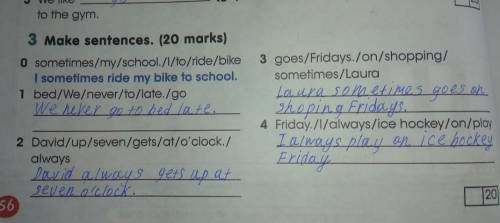 to the gym.
3 Make sentences. (20 marks)
0 sometimes/my/school./I/to/ride/bike
I sometimes ride my bike to school.
1 bed/We/never/to/late./go
We never go to bed late.
2 David/up/seven/gets/at/o'clock./
always
David always gets up at
seven o'clock.
3 goes/Fridays./on/shopping/
sometimes/Laura
Laura sometimes goes on
shoping Fridays.
4 Friday./I/always/ice hockey/on/play
I always play on ice hockey
Friday
20
56